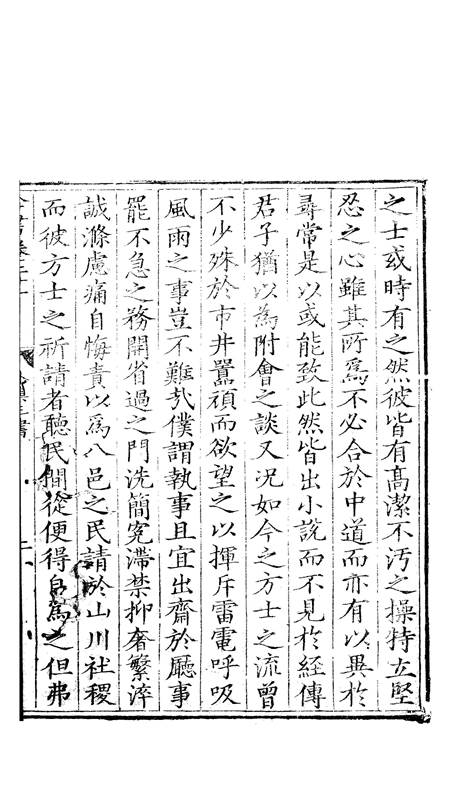 之士或時有之然彼皆有高潔不汚之操特立堅
忍之心雖其所爲不必合於中道而亦有以異於
尋常是以或能致此然皆出小說而不見於經傳
君子猶以為附會之談又况如今之方士之流曾
不少殊於市井嚚頑而欲望之以揮斥雷電呼吸
風雨之事豈不難㢤僕謂執事且宜出齋於廳事
罷不急之務開省過之門洗簡寃滯禁抑奢繁淬
誠滌慮痛自悔責以爲八邑之民請於山川社稷
而彼方士之祈請者聽民間從便得自為之但弗
全書卷二十